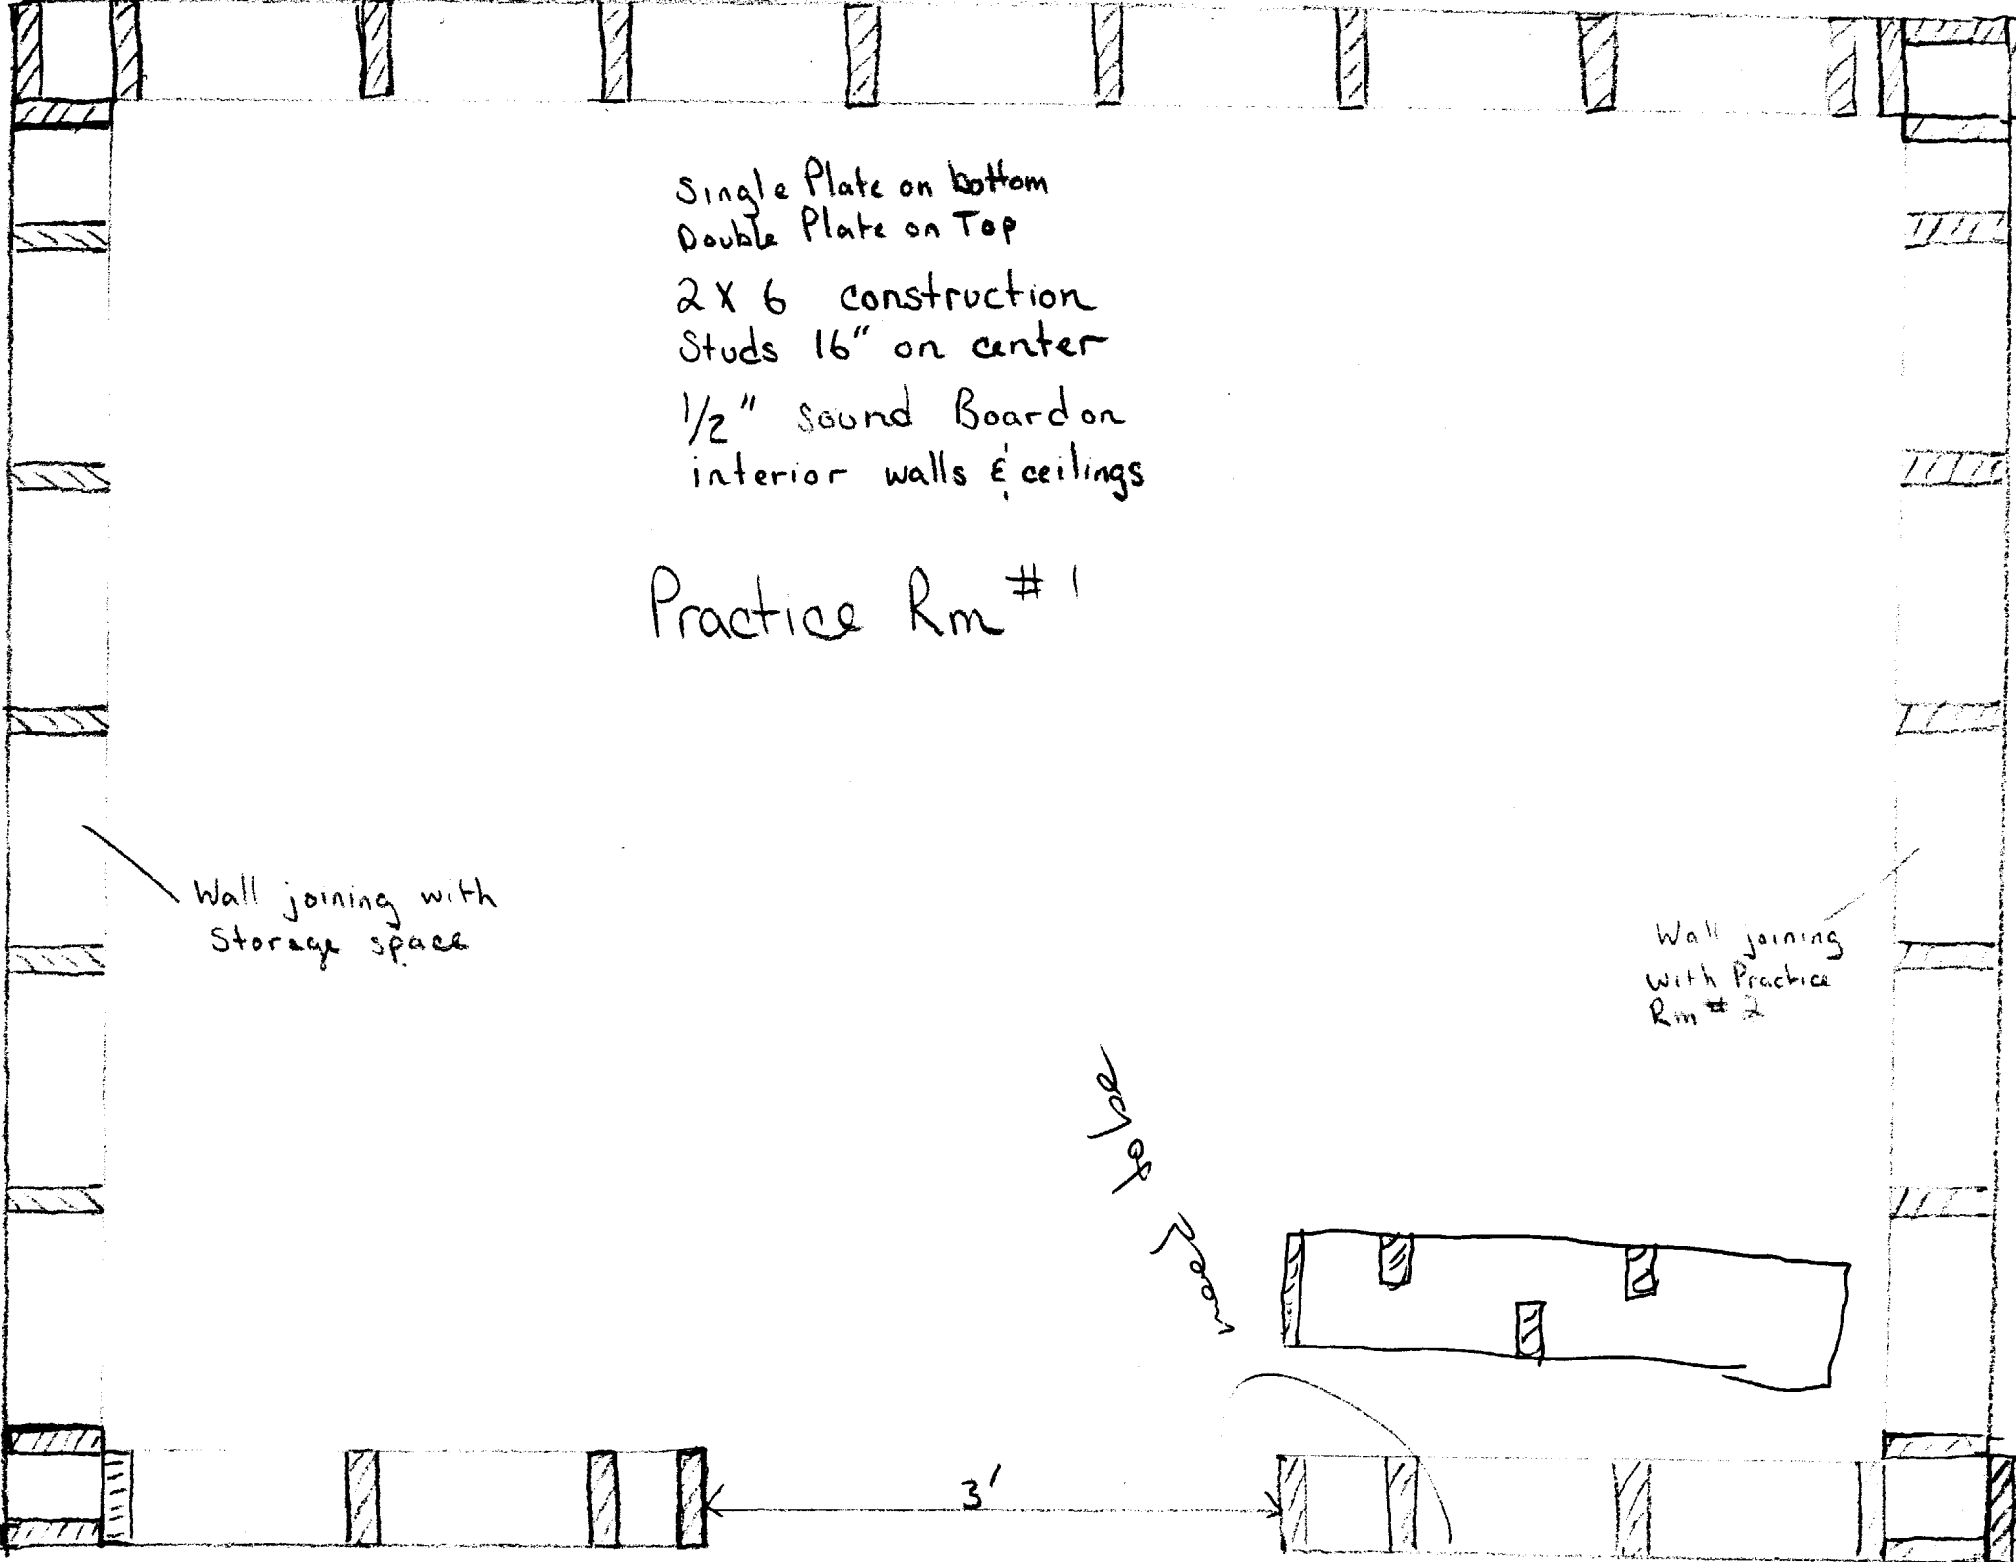 Single Plate on bottom
Double Plate on Top
2 X 6 construction
Studs 16" on center
1/2" Sound Board on
interior walls & ceilings
Practice Rm # 1
Wall joining with
Storage space
Wall joining
with Practice
Rm # 2
3'